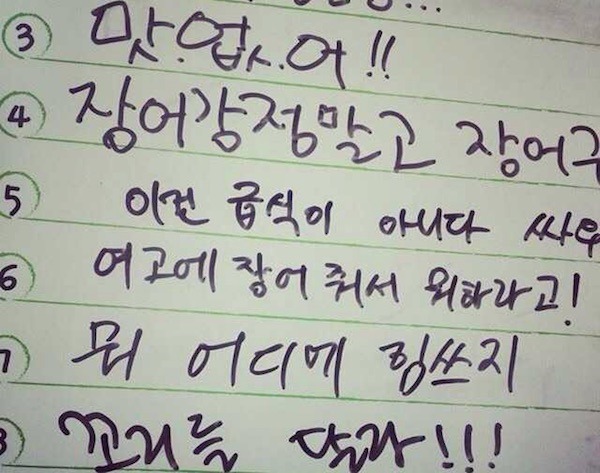 ③ 맛.없.어!!
④ 장어강정말고 장어구
5 이건 급식이 아니다 싸우
6 여고에 장어 줘서 뭐하라고!
7 뭐 어디에 힘쓰지
8 꼬리를 달라!!!